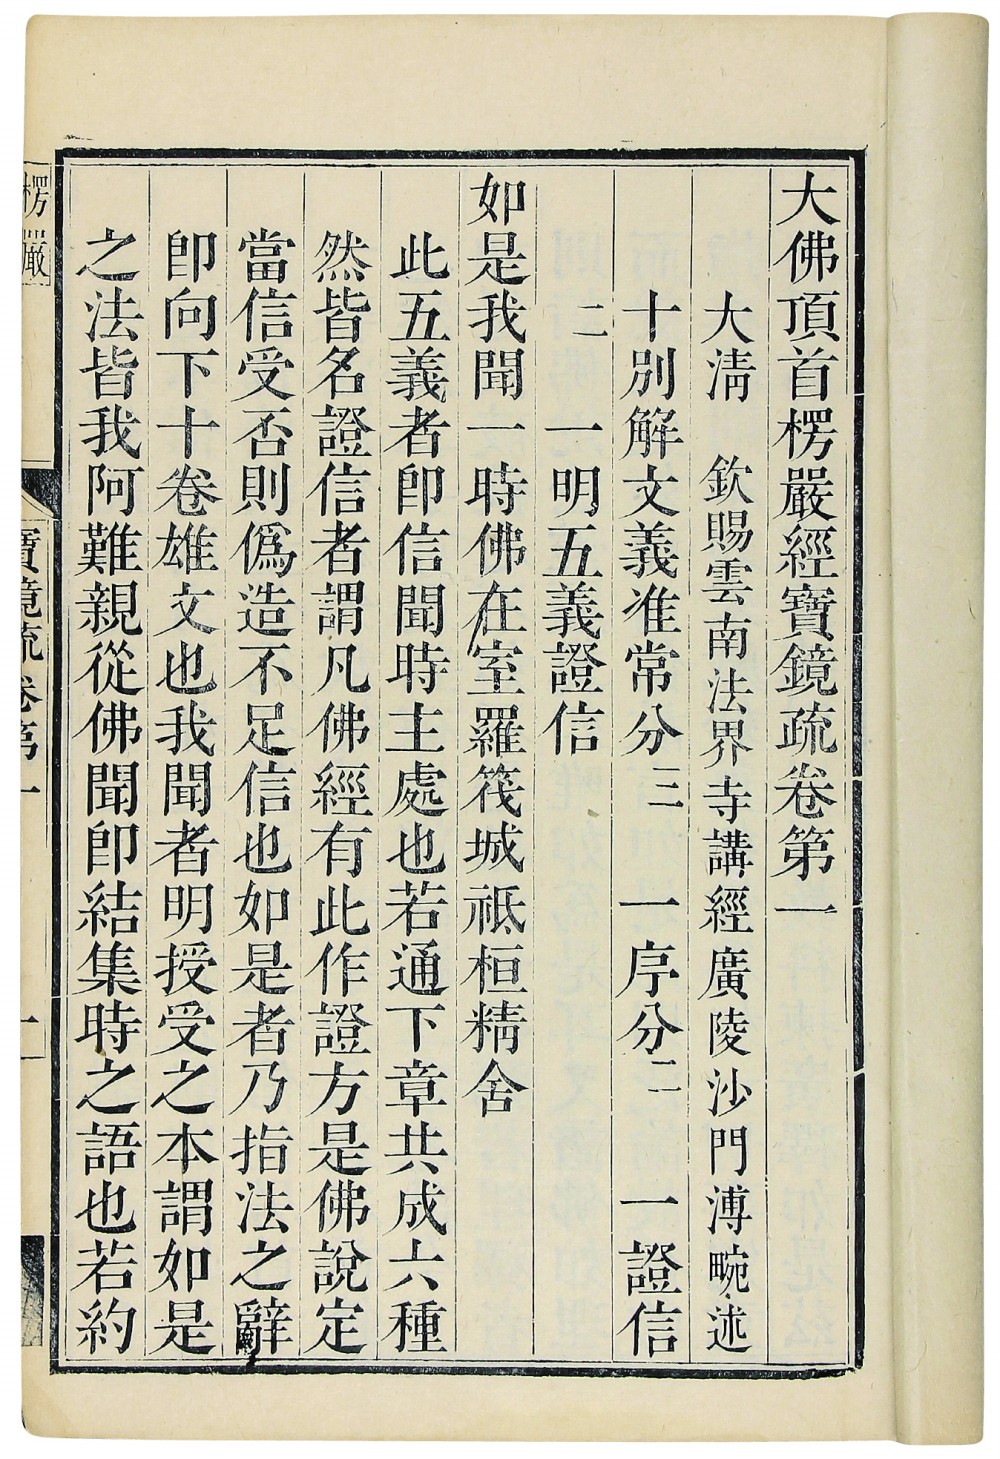 大佛頂首楞嚴經寶鏡疏卷第一
大清　欽賜雲南法界寺講經廣陵沙門溥畹述
十別解文義准常分三　一序分二　一證信
二　一明五義證信
如是我聞一時佛在室羅筏城祇桓精舍
此五義者即信聞時主處也若通下章共成六種
然皆名證信者謂凡佛經有此作證方是佛說定
當信受否則偽造不足信也如是者乃指法之辭
即向下十卷雄文也我聞者明授受之本謂如是
之法皆我阿難親從佛聞即結集時之語也若約
楞嚴
寶鏡疏卷第一
一